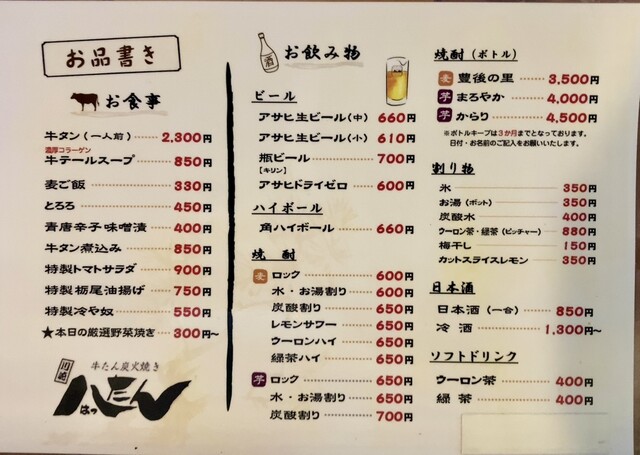 お品書き
お食事
牛タン（一人前） 2,300円
濃厚コラーゲン
牛テールスープ 850円
麦ご飯 330円
とろろ 450円
青唐辛子味噌漬 400円
牛タン煮込み 850円
特製トマトサラダ 900円
特製栃尾油揚げ 750円
特製冷や奴 550円
★本日の厳選野菜焼き 300円～
川崎
牛たん炭火焼き
八たん
はっ
酒
お飲み物
ビール
アサヒ生ビール（中） 660円
アサヒ生ビール（小） 610円
瓶ビール 700円
［キリン］
アサヒドライゼロ 600円
ハイボール
角ハイボール 660円
焼酎
麦 ロック 600円
水・お湯割り 600円
炭酸割り 650円
レモンサワー 650円
ウーロンハイ 650円
緑茶ハイ 650円
芋 ロック 650円
水・お湯割り 650円
炭酸割り 700円
焼酎（ボトル）
麦 豊後の里 3,500円
芋 まろやか 4,000円
芋 からり 4,500円
※ボトルキープは3か月までとなっております。
日付・お名前のご記入をお願いいたします。
割り物
氷 350円
お湯（ポット） 350円
炭酸水 400円
ウーロン茶・緑茶（ピッチャー） 880円
梅干し 150円
カットスライスレモン 350円
日本酒
日本酒（一合） 850円
冷酒 1,300円～
ソフトドリンク
ウーロン茶 400円
緑茶 400円